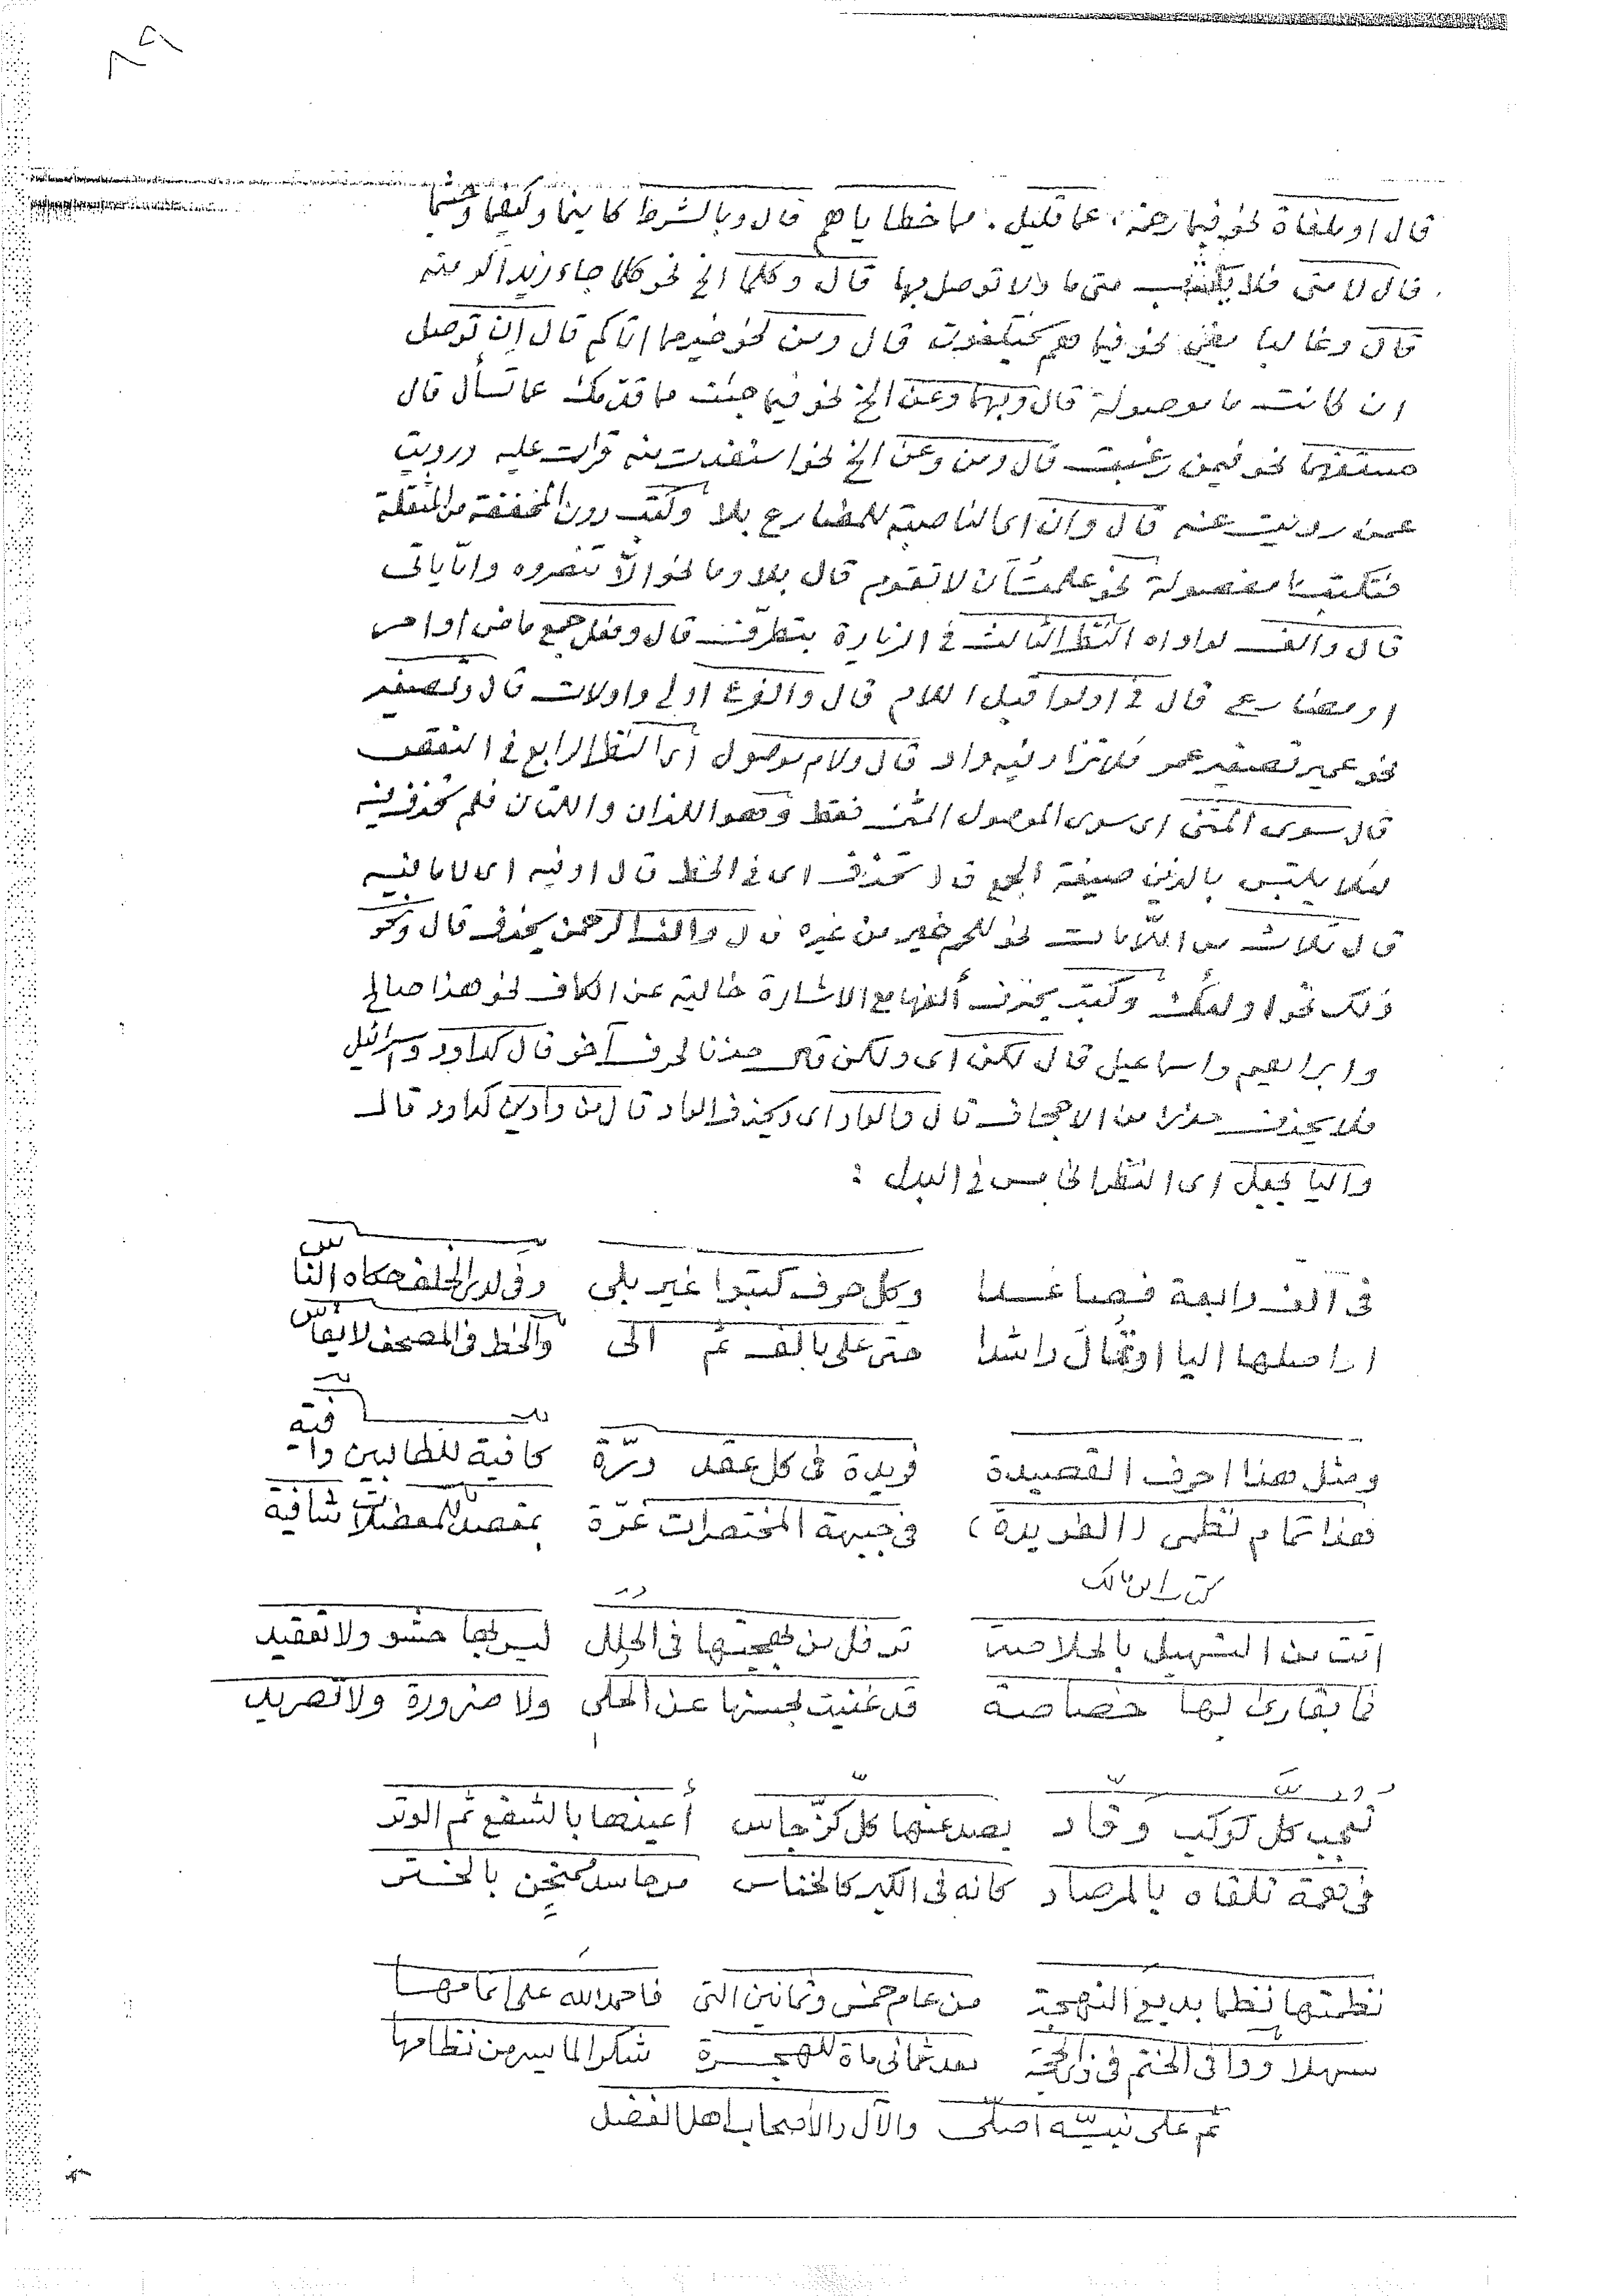 ٨٩
قال او ملغاة نحو فبما رحمة، عما قليل. مما خطاياهم قال وبالشرط كاينما وكيفما وحيثما
قال لا متى فلا يكتب متى ما ولا توصل بها قال وكلما الخ نحو كلما جاء زيد اكرمته
قال وغالبا بفى نحو فيما هم يختلفون قال ومن نحو خير مما اتاكم قال ان توصل
ان كانت ما موصولة قال وبها وعن الخ نحو فيما جئت مما قدمك عما تسأل قال
مستفهما نحو فيمن رغبت قال ومن وعن الخ نحو استفدت منه قرات عليه ورويت
عمن رويت عنه قال وان اى الناصبة للمضارع بلا وكتب دون المخففة من المثقلة
فتكتب مفصولة نحو علمت أن لا تقوم قال بلا وما نحو الا تنصروه واما ياتى
قال والف لواو اه النظر الثالث فى الزيادة بتطرفت قال وفعل جمع ماض او امر
او مضارع قال فى اولوا قبل اللام قال والفرع اولى واولات قال وتصغير
نحو عمير تصغير عمر فلا تزاد فيه واو قال ولام موصول اى النظر الرابع فى النقص
قال سوى المثنى اى سوى الموصول المثنى فقط وهو اللذان واللتان فلم تحذف فيه
لئلا يلتبس بالذين صيغة الجمع قال تحذف اى فى الخط قال او فيه اى لاما فيه
قال ثلاث من اللامات نحو للحم خير من غيره قال والف الرحمن يحذف قال ونحو
ذلك نحو اولئك وكتب يحذف ألفها مع الاشارة خالية عن الكاف نحو هذا صالح
وابراهيم واسماعيل قال لكن اى ولكن قال حذفا لحرف آخر قال كداود واسرائيل
فلا يحذف حذرا من الاجحاف قال والواو اى ويحذف الواو قال من واوين كداود قال
واليا يجعل اى النظر الخامس فى البدل :
فى الف رابعة فصاعدا وكل حرف كتبوا غير بلى وفى لدى الخلف حكاه الناس
اذا اصلها اليا او تمال راشدا حتى على بالف ثم الى والخط فى المصحف لا يقاس
ومثل هذا احرف القصيدة فريدة فى كل عقد درّة كافية للطالبين وافية
فهذا تمام نظمى (الفريدة) فى جبهة المختصرات غرّة بمقصد للمعضلات شافية
كتب ابن مالك
اتت من التسهيل بالخلاصة ترفل من بهجتها فى الحلل ليس بها حشو ولا تعقيد
فما بقارئ لها خصاصة قد غنيت بحسنها عن الحلى ولا ضرورة ولا تصريد
تحجب كل كوكب وقاد يصد عنها كل كزّ جاس أعيذها بالشفع ثم الوتر
فى نقمة تلقاه بالمرصاد كانه فى الكير كالخناس من حاسد ممتحن بالختر
نظمتها نظما بديع النهجة من عام خمس وثمانين التى فاحمد الله على اتمامها
سهلا ووافى الختم فى ذى الحجة بعد ثمانى ماة للهجرة شكرا لما يسر من نظامها
ثم على نبيّه اصلى والآل والأصحاب اهل الفضل